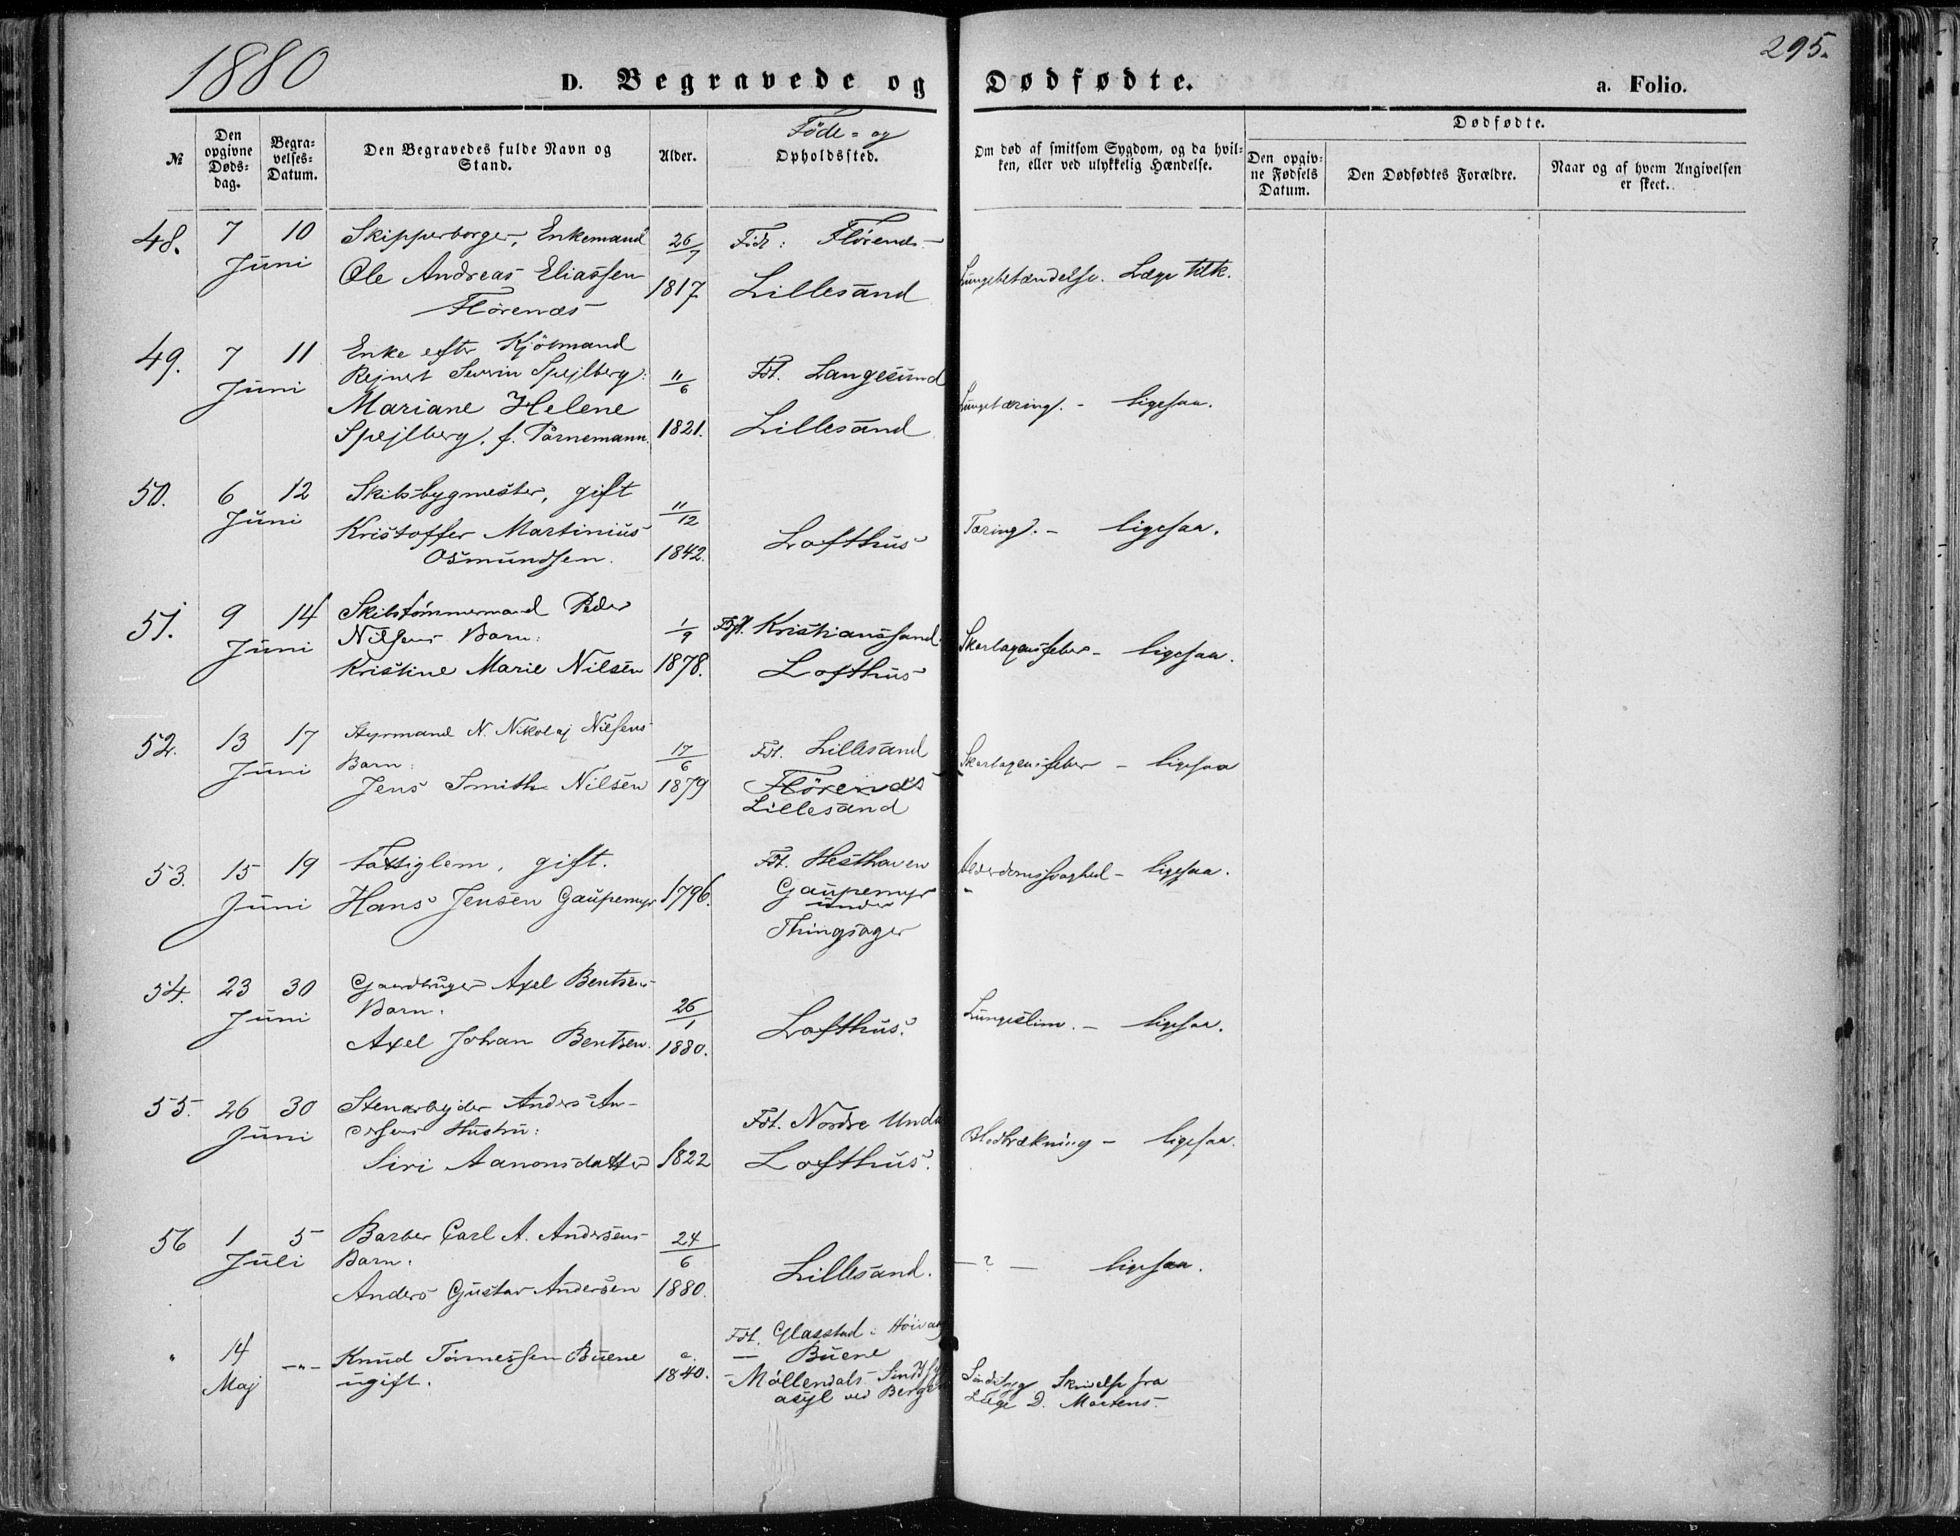 1880
295.
D. Begravede og Dødfødte.
a. Folio.
№
Den opgivne Døds-dag.
Begra-velses-Datum.
Den Begravedes fulde Navn og Stand.
Alder.
Føde- og
Opholdssted.
Om død af smitsom Sygdom, og da hvil-ken, eller ved ulykkelig Hændelse.
Dødfødte.
Den opgiv-ne Fødsels Datum.
Den Dødfødtes Forældre.
Naar og af hvem Angivelsen er skeet.
48. 7 10 Skipperborger, Enkemand 26/7 Flørenæs
Juni Ole Andreas Eliassen 1817. Lillesand Lungebetændelse. Læge tilk.
Flørenæs
49. 7 11 Enke efter Kjøbmand
Juni Rejnert Severin Spejlberg: 11/6 Fdt. Langesund
Mariane Helene Lungetæring. - ligesaa.
Spejlberg, f. Tårnemann. 1821. Lillesand
50. 6 12 Skibsbygmester, gift 11/12
Juni Kristoffer Martinius Lofthus Tæring. - ligesaa.
Osmundsen. 1842.
51. 9 14 Skibstømmermand Peder
Juni Nilsens Barn: 1/9 Fdt. Kristianssand. Skarlagensfeber - ligesaa.
Kristine Marie Nilsen 1878. Lofthus
52. 13 17 Styrmand N. Nikolaj Nilsens
Juni Barn: 17/6 Fdt. Lillesand Skarlagensfeber - ligesaa
Jens Smith Nilsen 1879 Flørenæs
Lillesand
53. 15 19 Fattiglem, gift. Fdt. Hesthaven
Juni Hans Jensen Gaupemyr 1796. Gaupemyr Alderdomssvaghed - ligesaa.
under
Thingsager
54. 23 30 Gaardbruger Axel Bentsens
Juni Barn: 26/1 Lofthus. Lungeslim. - ligesaa.
Axel Johan Bentsen. 1880.
55. 26 30 Stenarbejder Anders An-
Juni dersens Hustru: Fdt. Nordre Blodbrækning - ligesaa.
Siri Aanonsdatter 1822 Lofthus.
56 1 5 Barber Carl A. Andersens 24/6
Juli Barn: Lillesand. - ? - ligesaa.
Anders Gustav Andersen 1880.
" 14 -"- Knud Tønnessen Buene c. Fdt. Glasstad i Høivaag
Maj ugift. 1840. — Buene
- Møllendals Sindssyge
asyl ved Bergen Sindssyg Skrivelse fra
Læge D. Martens.